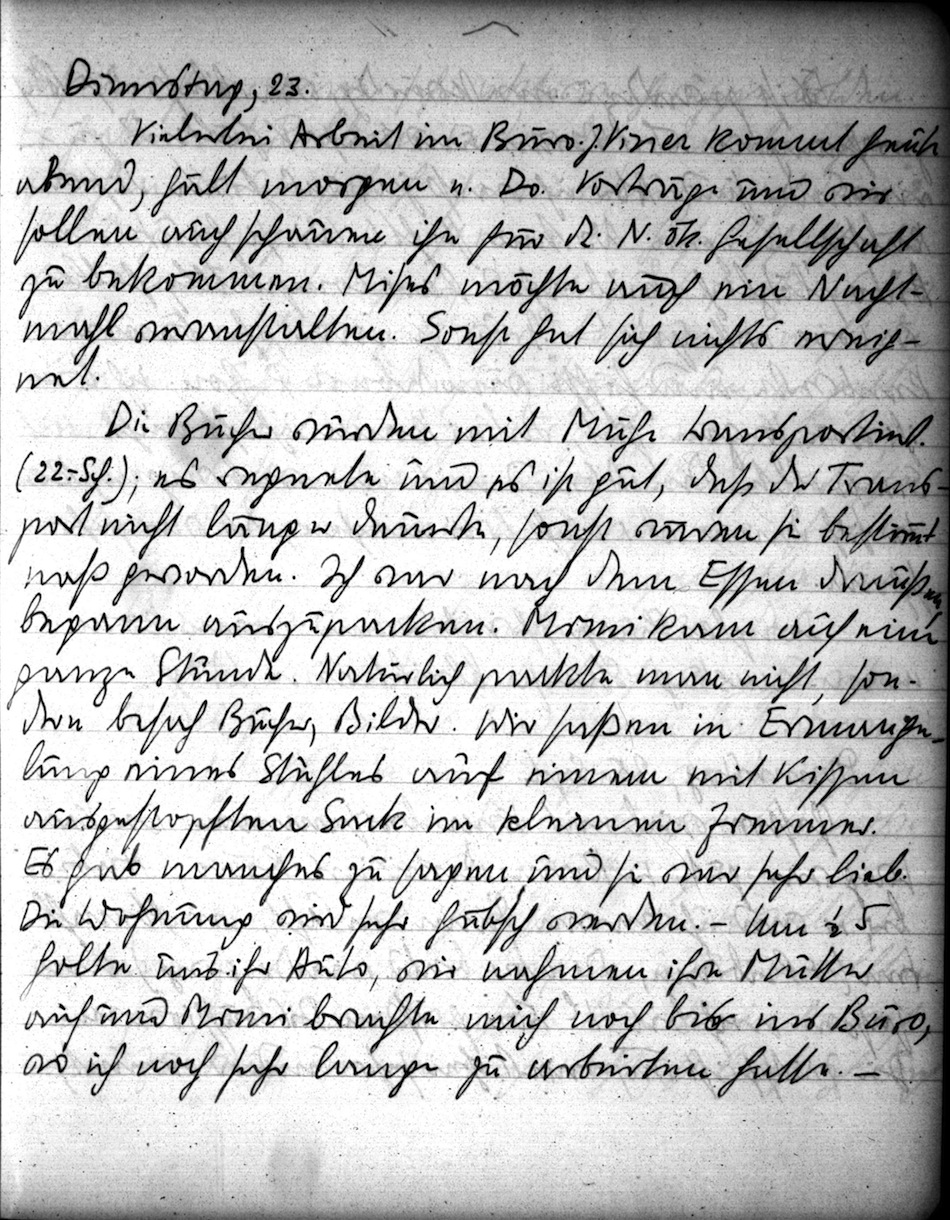 Dienstag, 23.
Vielerlei Arbeit im Büro. J. Viner kommt heute
abend, hält morgen u. Do. Vorträge und wir
sollen auch schauen ihn für d. N. ök. Gesellschaft
zu bekommen. Mises möchte auch ein Nacht-
mahl veranstalten. Sonst hat sich nichts ereig-
net.
Die Bücher wurden mit Mühe transportiert.
(22.- Sch.); es regnete und es ist gut, daß der Trans-
port nicht länger dauerte, sonst wären sie bestimmt
naß geworden. Ich war nach dem Essen draußen,
begann auszupacken. Mimi kam auch eine
ganze Stunde. Natürlich packte man nicht, son-
dern besah Bücher, Bilder. Wir saßen in Ermange-
lung eines Stuhles auf einem mit Kissen
ausgestopften Sack im kleinen Zimmer.
Es gab manches zu sagen und sie war sehr lieb.
Die Wohnung wird sehr hübsch werden. – Um ½ 5
holte uns ihr Auto, wir nahmen ihre Mutter
auf und Mimi brachte mich noch bis ins Büro,
wo ich noch sehr lange zu arbeiten hatte. –